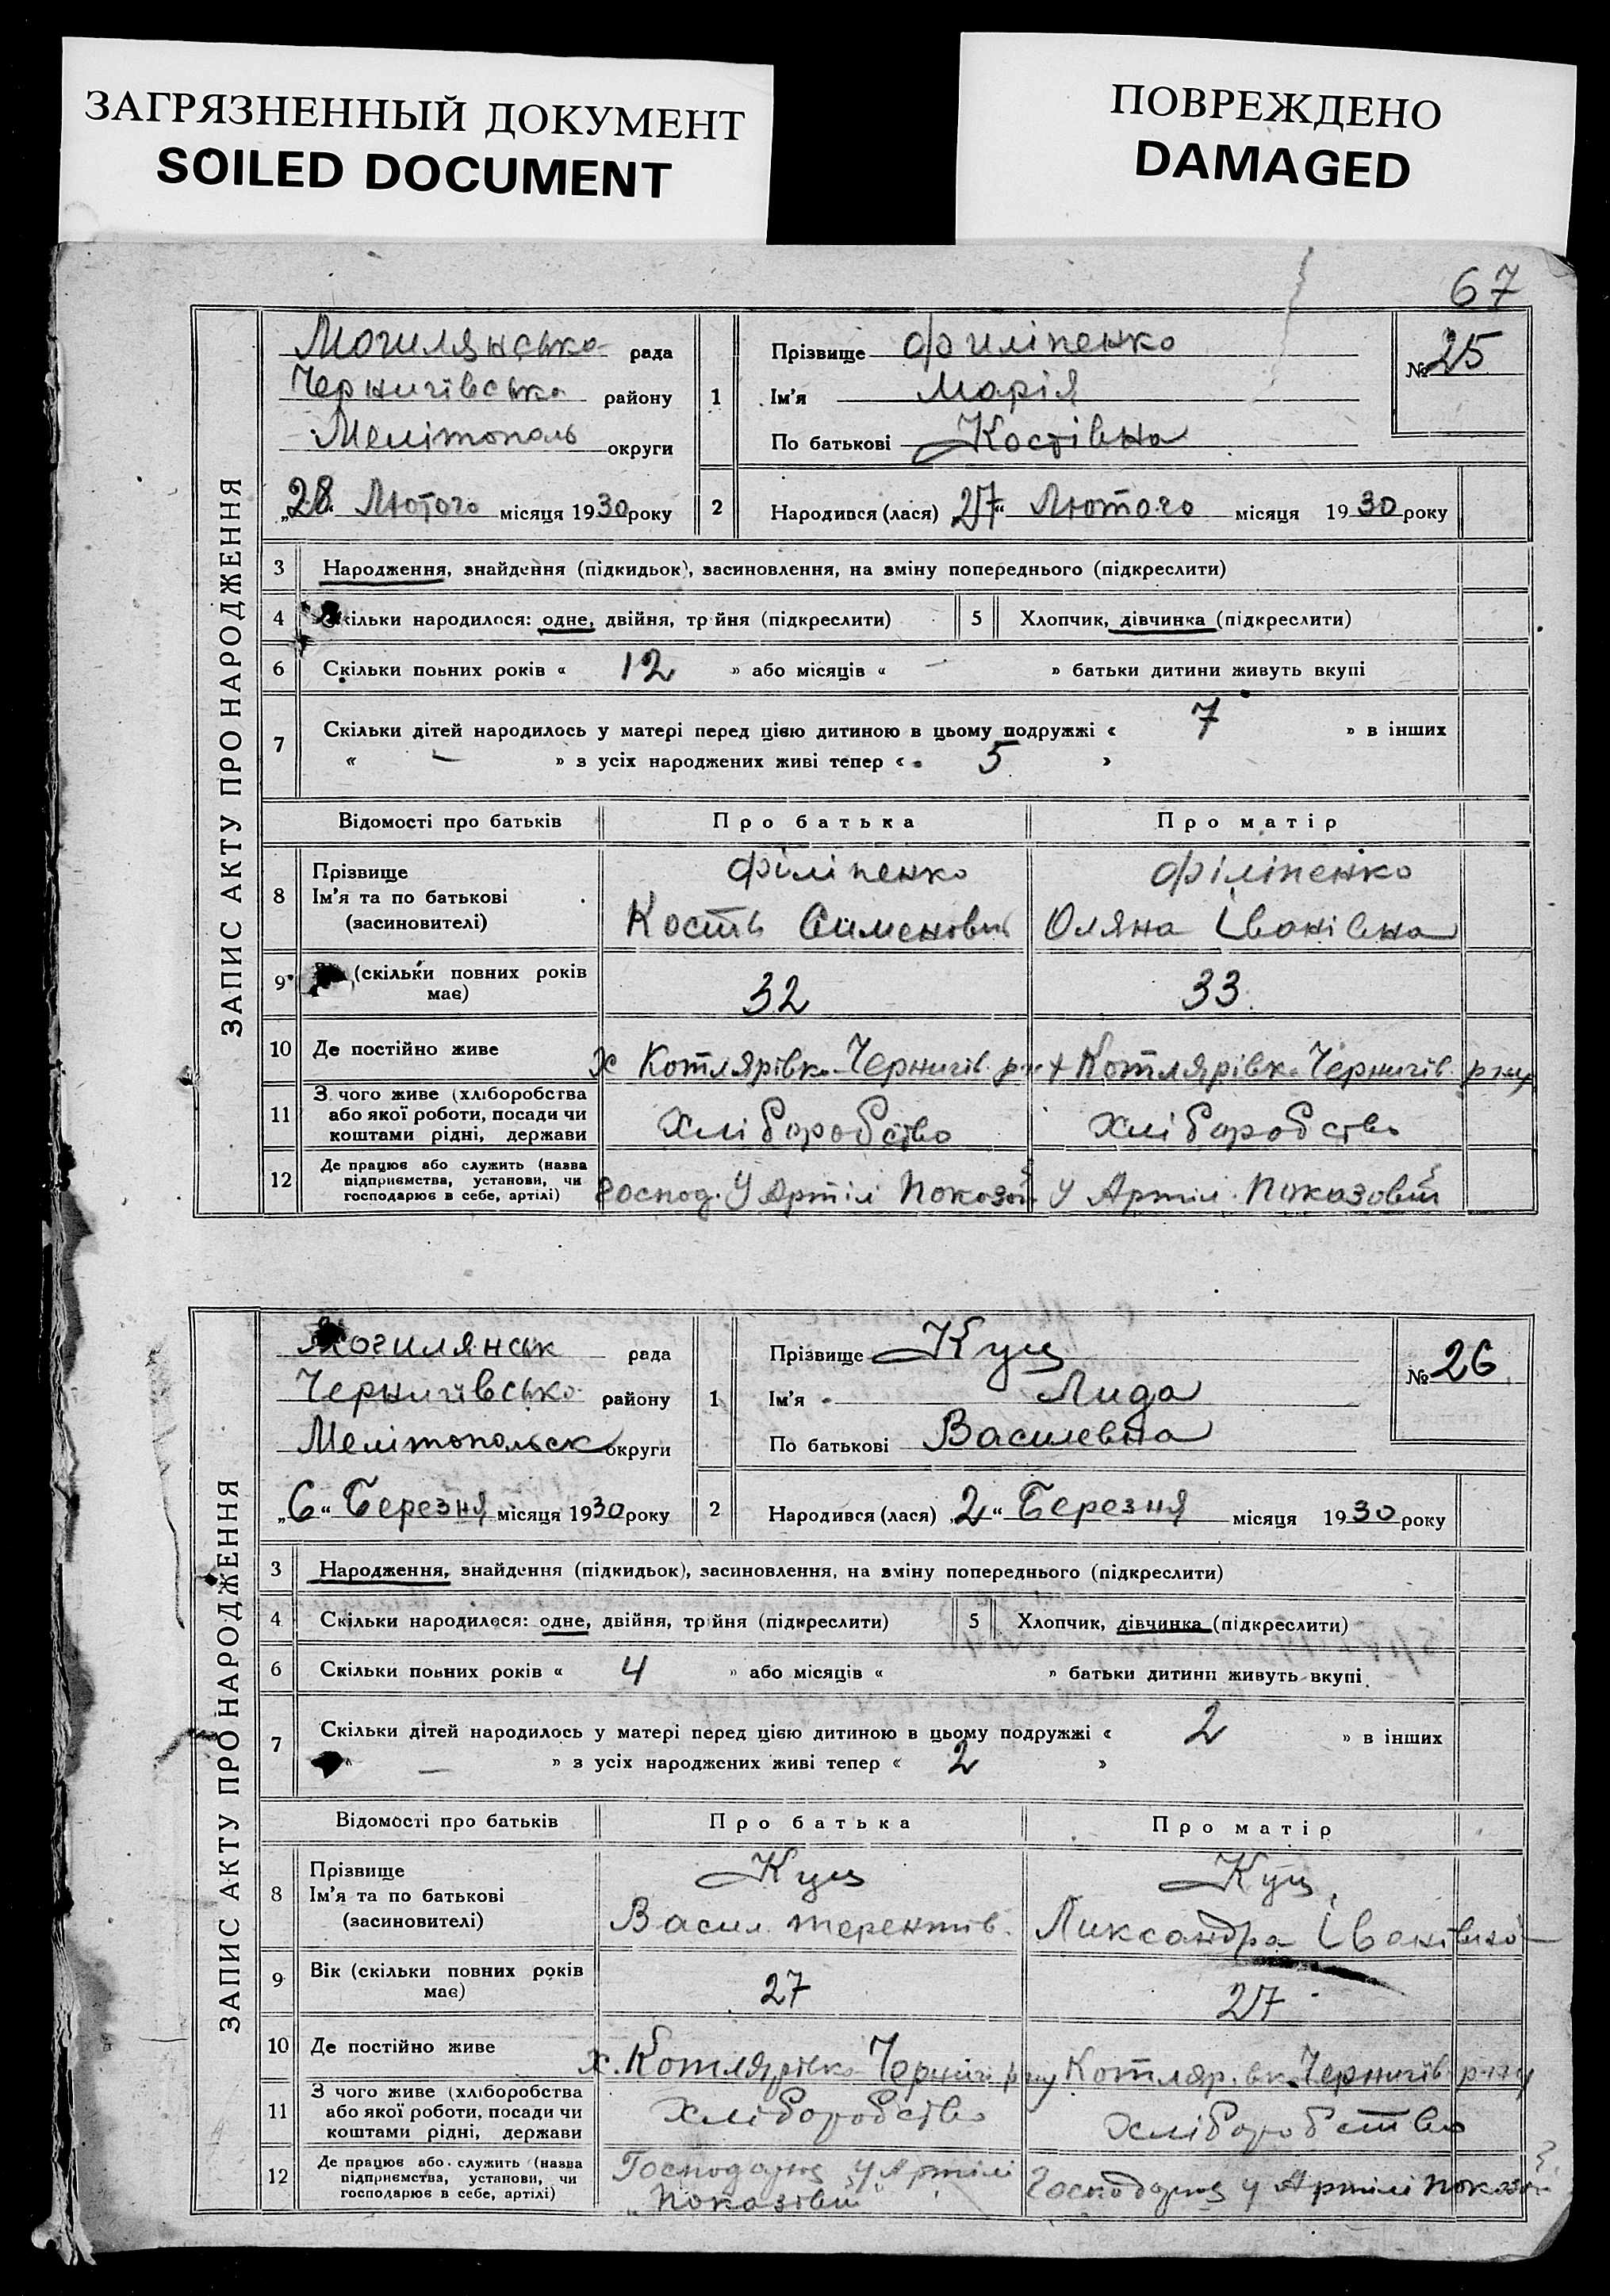 ЗАГРЯЗНЕННЫЙ ДОКУМЕНТ
SOILED DOCUMENT
ПОВРЕЖДЕНО
DAMAGED
67
ЗАПИС АКТУ ПРО НАРОДЖЕННЯ
Могилянсько рада
Чернигівсько району
Мелітополь округи
„28“ Лютого місяця 1930 року
1 Прізвище Филіпенко
Ім'я Марія
По батькові Костівна
№ 25
2 Народився (лася) 27“ Лютого місяця 1930 року
3 Народження, знайдення (підкидьок), засиновлення, на зміну попереднього (підкреслити)
4 Скільки народилося: одне, двійня, трійня (підкреслити) 5 Хлопчик, дівчинка (підкреслити)
6 Скільки повних років « 12 » або місяців « — » батьки дитини живуть вкупі
7 Скільки дітей народилось у матері перед цією дитиною в цьому подружжі « 7 » в інших
« — » з усіх народжених живі тепер « 5 »
Відомості про батьків Про батька Про матір
8 Прізвище
Ім'я та по батькові
(засиновителі)
Філіпенко
Кость Сименович
Філіпенко
Оляна Іванівна
9 (скільки повних років
має)
32 33
10 Де постійно живе х Котлярівка Чернигів. р-ну х Котлярівка Чернигів. р-ну
11 З чого живе (хліборобства
або якої роботи, посади чи
коштами рідні, держави
Хліборобство Хліборобство
12 Де працює або служить (назва
підприємства, установи, чи
господарює в себе, артілі)
Господ. у Артілі У Артіл. Показовій
ЗАПИС АКТУ ПРО НАРОДЖЕННЯ
Могилянськ рада
Чернигівсько району
Мелітопольск округи
„6“ Березня місяця 1930 року
1 Прізвище Кущ
Ім'я Лида
По батькові Василевна
№ 26
2 Народився (лася) 2“ Березня місяця 1930 року
3 Народження, знайдення (підкидьок), засиновлення, на зміну попереднього (підкреслити)
4 Скільки народилося: одне, двійня, трійня (підкреслити) 5 Хлопчик, дівчинка (підкреслити)
6 Скільки повних років « 4 » або місяців « » батьки дитини живуть вкупі
7 Скільки дітей народилось у матері перед цією дитиною в цьому подружжі « 2 » в інших
« — » з усіх народжених живі тепер « 2 »
Відомості про батьків Про батька Про матір
8 Прізвище
Ім'я та по батькові
(засиновителі)
Кущ
Васил Терентів.
Кущ
Ликсандра Іванівна
9 Вік (скільки повних років
має)
27 27
10 Де постійно живе х. Котлярівка р-ну Котляр.вка Чернигів р-ну
11 З чого живе (хліборобства
або якої роботи, посади чи
коштами рідні, держави
Хліборобство Хліборобство
12 Де працює або служить (назва
підприємства, установи, чи
господарює в себе, артілі)
Господарює у Артілі
„Показовій“
Господарює у Артілі